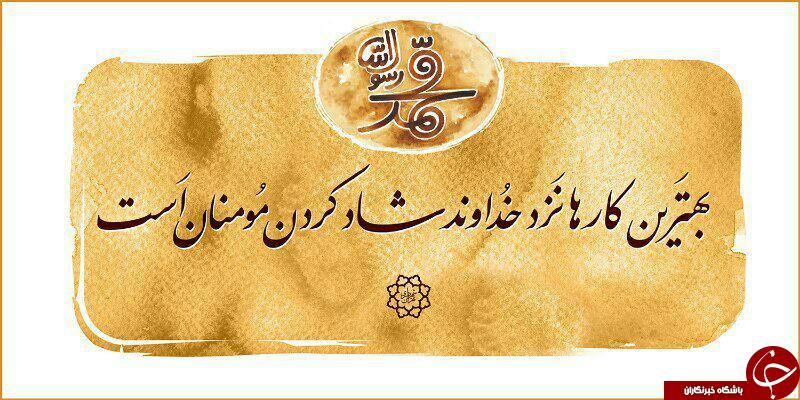 محمد رسول الله
بهترَین کارها نَزد خُداوند شاد کردن مُومنان اَست
باشگاه خبرنگاران